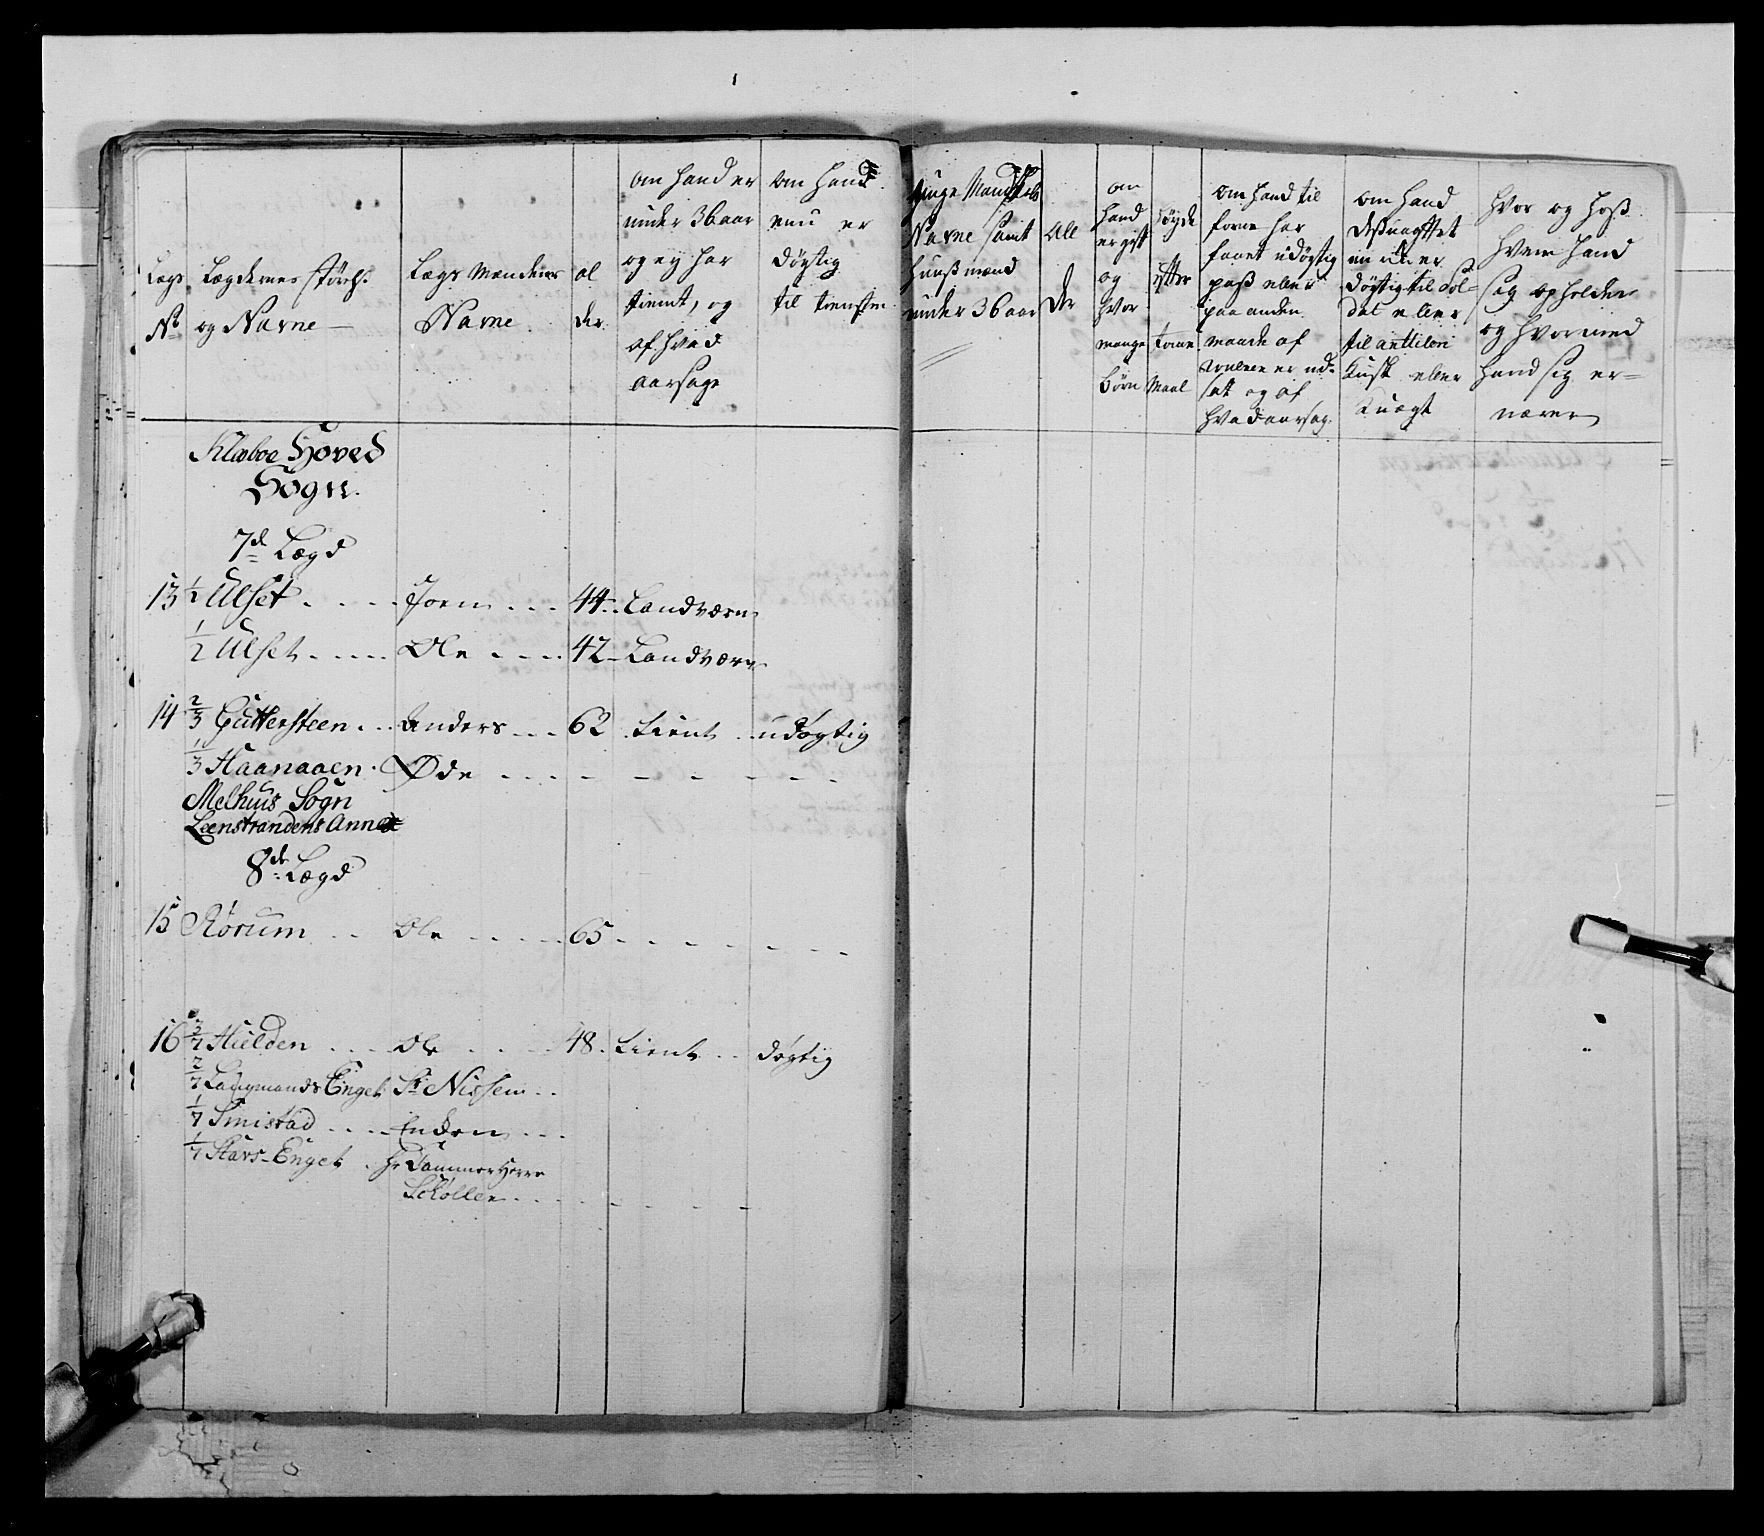 Lægs
No
Lægdernes størelse
og Navne
Lægs Mændenes
Navne
al
der
om hand er
under 36 aar
og ey har
tient, og
af hvad
aarsage
om hand
enu er
døgtig
til tienesten
unge Mandskabs
Navne samt
Huusmænd
under 36 aar
All
der
om
hand
er gift
og
hvor
mange
børn
høyde
efter
tome
Maal
om hand til
forne har
faaet udøgtig
pass eller
paa anden
maade af
rullene er ud=
satt og af
hvad aarsag
om hand
desuagtet
enu er
døgtig til Sol=
dat eller
til artilleri
Kusk eller
Knægt
hvor og hoss
hvem hand
sig opholder
og hvormed
hand sig er=
nærer
Klæboe Hoved
Sogn.
7de Lægd
13 1/2 Ulset .... Joen ... 44 .. Landværn
1/2 Ulset .... Ole .... 42 - Landværn
14 2/3 Guttersteen .. Anders ... 62 . tient .. udøgtig
1/3 Haanaaen . Øde
Melhuus Sogn
Leenstrandens Annex
8de Lægd
15 Rørum .. Ole .... 65
16 3/7 Hielden ... Ole .... 48 . tient .. døgtig
2/7 Laugmands Enget Sr Nissen ..
1/7 Smistad .... Enken ...
1/7 Stavs-Enget . Hr Cammer Herre
Schøller